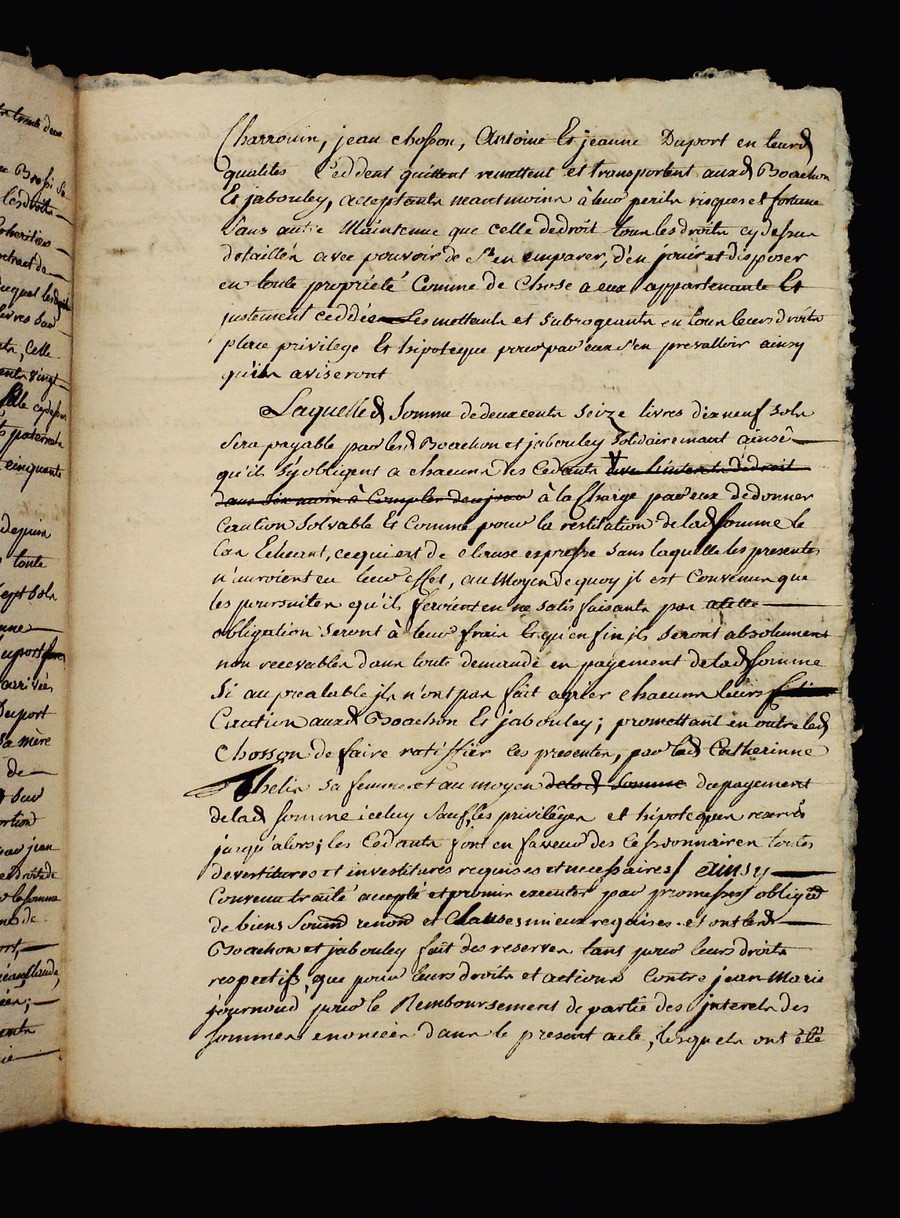 Charrouin, jean chosson, Antoine Et jeanne Duport en leurd
qualites Ceddent quittent remettent et transportent auxd Boachon
Et jabouley, acceptants neantmoins à leur perils risques et fortune
Sans autre Maintenue que celle de droit tous les droits cydessus
detaillés avec pouvoir de s'en emparer, d'en jouir et disposer
en toute propriété Comme de Chose a eux appartenante Et
justement ceddée Les mettants et subrogeants en tous leurs droits
place privilege Et hipoteque pour par eux s'en prevalloir ainsy
qu'ils aviseront
Laquelle d Somme de deux cents Seize livres dix neuf sols
Sera payable par lesd Boachon et jabouley solidairement ainsè
qu'il s'y obligent a chacuns des Cedants avec l'interets de droit
dans Six mois à Compter de ce jour à la Charge par eux de donner
Caution Solvable Et Comme pour la restitution de lad Somme le
Cas Echeant, ce qui est de clause expresse sans laquelle les presentes
n'auroient eu leur effet, au Moyen de quoy jl est Convenu que
les poursuites qu'ils feroient en ne satisfaisants pas a
obligation seront à leur frais Et qu'en fin jls seront absolument
non recevables dans toute demande en payement de lad Somme
Si au prealable jls n'ont pas fait agréer chacuns leurs
Caution auxd Boachon Et jabouley; promettant en outre led
Chosson de faire ratiffier ces presentes, par lad Catherinne
Thelis sa femme et au moyen de lad Somme de payement
de lad somme icelluy Sauf, les privilêges et hipoteques reservés
jusqu'alors; les Cedants font en faveur des Cessionnaires toutes
devestitures et investitures requises et necessaires / ainsy
Convenu traité accepté et promis executer par promesses obligod
de biens Soumd renond et Clauses mieux requises. et ont lesd
Boachon et jabouley fait des reserves tant pour leurs droits
respectifs, que pour leurs droits et actions Contre jean Marie
journoud pour le Remboursement de partie des jnterets des
sommes enoncées dans le present acte, lesquels ont été